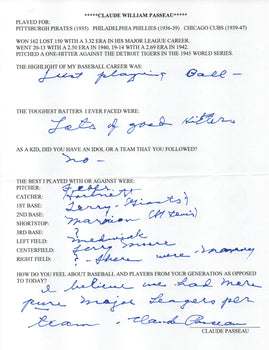 *****CLAUDE WILLIAM PASSEAU*****
PLAYED FOR:
PITTSBURGH PIRATES (1935) PHILADELPHIA PHILLIES (1936-39) CHICAGO CUBS (1939-47)
WON 162 LOST 150 WITH A 3.32 ERA IN HIS MAJOR LEAGUE CAREER.
WENT 20-13 WITH A 2.50 ERA IN 1940, 19-14 WITH A 2.69 ERA IN 1942.
PITCHED A ONE-HITTER AGAINST THE DETROIT TIGERS IN THE 1945 WORLD SERIES.
THE HIGHLIGHT OF MY BASEBALL CAREER WAS:
Just playing Ball -
THE TOUGHEST BATTERS I EVER FACED WERE:
Lots of good hitters
AS A KID, DID YOU HAVE AN IDOL OR A TEAM THAT YOU FOLLOWED?
no -
THE BEST I PLAYED WITH OR AGAINST WERE:
PITCHER:
CATCHER: Hartnett
1ST BASE: Terry - (Giants)
2ND BASE:
SHORTSTOP: Marion (St Louis)
3RD BASE: ?
LEFT FIELD: Medwick
CENTERFIELD: Terry Moore
RIGHT FIELD: ? - There were - many
HOW DO YOU FEEL ABOUT BASEBALL AND PLAYERS FROM YOUR GENERATION AS OPPOSED
TO TODAY?
I believe we had more
pure Major Leagers per
team - Claude Passeau
CLAUDE PASSEAU